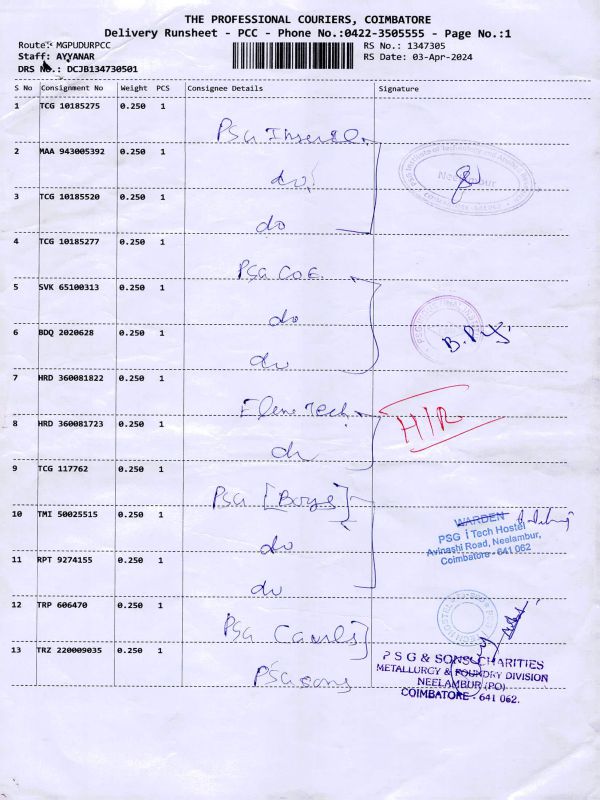 THE PROFESSIONAL COURIERS, COIMBATORE
Delivery Runsheet - PCC - Phone No.:0422-3505555 - Page No.:1
Route: MGPUDURPCC RS No.: 1347305
Staff: AYYANAR RS Date: 03-Apr-2024
DRS No.: DCJB134730501
S No Consignment No Weight PCS Consignee Details Signature
1 TCG 10185275 0.250 1
PSG
2 MAA 943005392 0.250 1
do
3 TCG 10185520 0.250 1
do
4 TCG 10185277 0.250 1
PSG COE
5 SVK 65100313 0.250 1
do
6 BDQ 2020628 0.250 1
do
7 HRD 360081822 0.250 1
Tech H/R
8 HRD 360081723 0.250 1
do
9 TCG 117762 0.250 1
PSG [Boys]
10 TMI 50025515 0.250 1
do
WARDEN
PSG i Tech Hostel
Avinashi Road, Neelambur,
Coimbatore - 641 062
11 RPT 9274155 0.250 1
do
12 TRP 606470 0.250 1
PSG
13 TRZ 220009035 0.250 1
PSG sons
P S G & SONS CHARITIES
METALLURGY & FOUNDRY DIVISION
NEELAMBUR (PO)
COIMBATORE - 641 062.